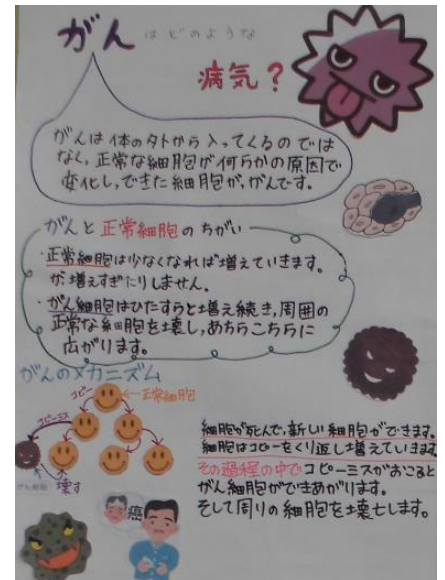 がんはどのような
病気?
がんは体の外から入ってくるのでは
なく、正常な細胞が何らかの原因で
変化し、できた細胞が、がんです。
がんと正常細胞のちがい
・正常細胞は少なくなれば増えていきます。
が、増えすぎたりしません。
・がん細胞はひたすらと増え続き、周囲の
正常な細胞を壊し、あちらこちらに
広がります。
がんのメカニズム
コピー
←正常細胞
コピーミス
がん細胞
壊す
癌
細胞が死んで、新しい細胞ができます。
細胞はコピーをくり返し増えていきます。
その過程の中でコピーミスがおこると
がん細胞ができあがります。
そして周りの細胞を壊七します。